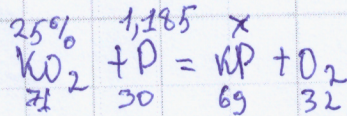 25% 1,185 x
KO2 + P = KP + O2
71 30 69 32